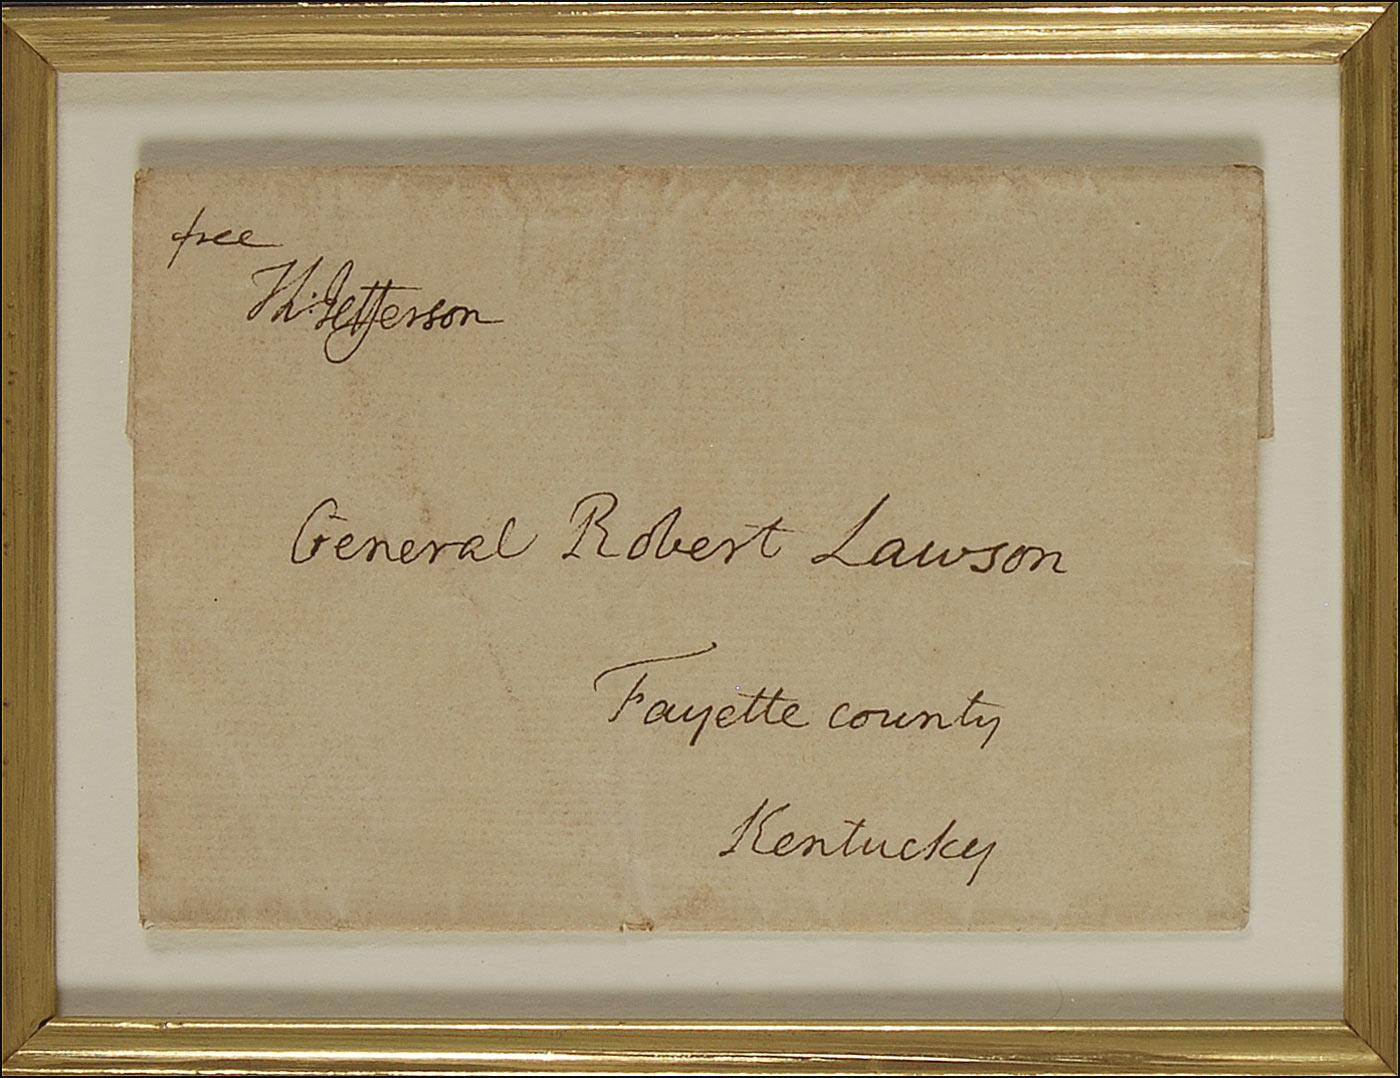 free
Th: Jefferson
General Robert Lawson
Fayette county
Kentucky